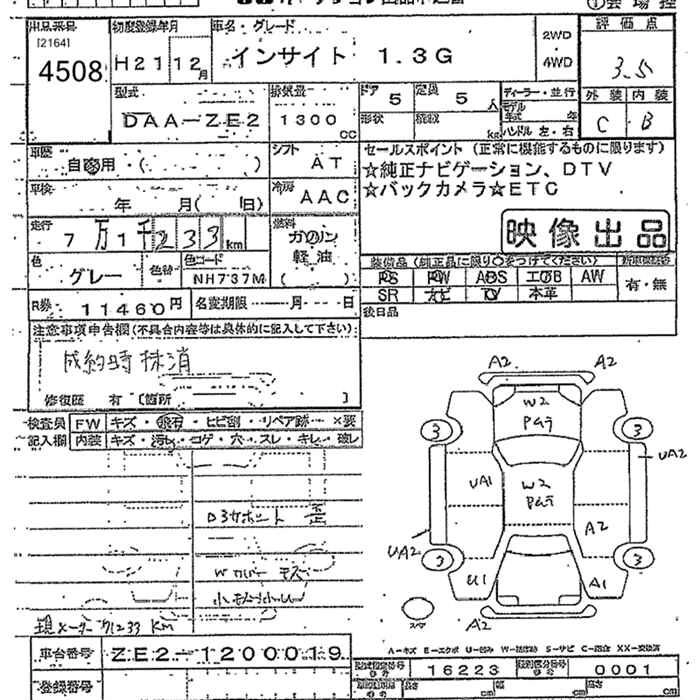 出品番号
[2164]
4508
初度登録年月
H21 12月
車名・グレード
インサイト 1.3G
2WD
4WD
評価点
3.5
外装 内装
C B
型式
DAA-ZE2
排気量
1300 CC
ドア 5
定員 5 人
形状
積載 kg
ディーラー・並行
モデル年式 年
ハンドル 左・右
車歴
自家用・( )
シフト
AT
車検
年 月( 日)
冷房
AAC
セールスポイント (正常に機能するものに限ります)
☆純正ナビゲーション、DTV
☆バックカメラ☆ETC
映像出品
走行
7万1千233km
燃料
ガソリン
軽油
色
グレー
色替
色コード
NH737M
装備品 (純正品に限り○をつけてください)
PS PW ABS エアB AW
SR ナビ TV 本革
有・無
R券
11460円
名変期限 月 日
後日品
注意事項申告欄(不具合内容等は具体的に記入して下さい)
成約時 抹消
修復歴 有 [箇所 ]
検査員 FW キズ・飛石・ヒビ割・リペア跡・×要
記入欄 内装 キズ・汚れ・コゲ・穴・スレ・キレ・破レ
D3サポート 歪
Wカバー キズ
現メーター 71233 KM
車台番号 ZE2-1200019
登録番号
A2 A2
W2
Pムラ
3 3
UA1
UA2
W2
Pムラ
A2
UA2
3 3
U1
A1
スペア
A2
A-キズ E-エクボ U-凹み W-補修跡 S-サビ C-腐食 XX-交換済
型式指定番号 16223
類別区分番号 0001
長さ cm
cm
cm